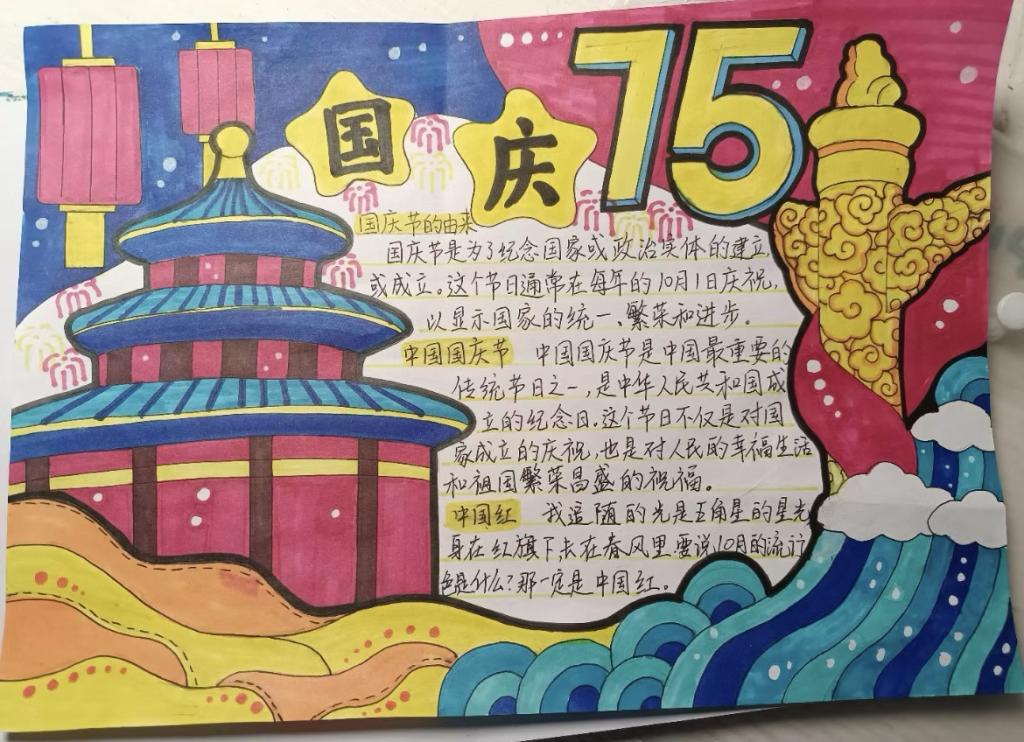 国庆
75
国庆节的由来
国庆节是为了纪念国家或政治实体的建立
或成立。这个节日通常在每年的10月1日庆祝,
以显示国家的统一、繁荣和进步。
中国国庆节 中国国庆节是中国最重要的
传统节日之一,是中华人民共和国成
立的纪念日。这个节日不仅是对国
家成立的庆祝,也是对人民的幸福生活
和祖国繁荣昌盛的祝福。
中国红 我追随的光是五角星的星光
身在红旗下去在春风里要说10月的流行
色是什么?那一定是中国红。